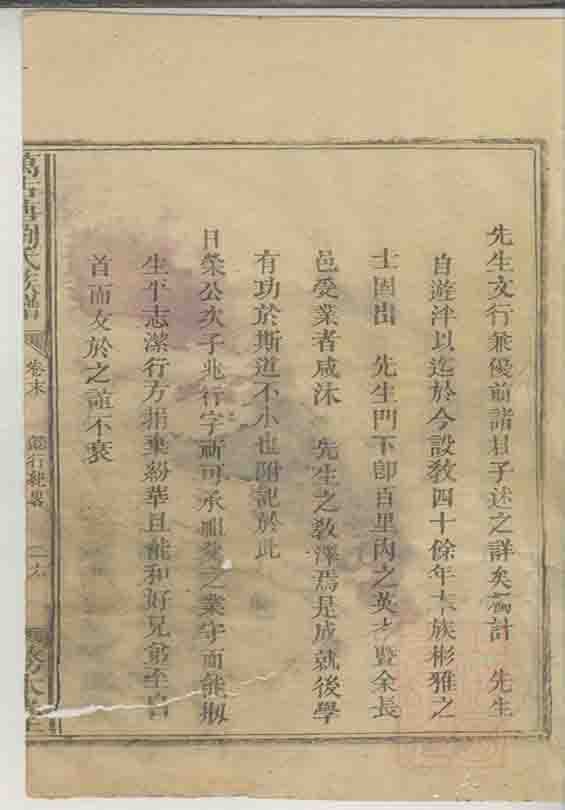 先生文行兼優前諸君子述之詳矣獨計　先生
自遊泮以迄於今設教四十餘年本族彬雅之
士固出　先生門下即百里內之英才暨余長
邑受業者咸沐　先生之教澤焉是成就後學
有功於斯道不小也附記於此
日榮公次子兆行字祈可承祖父之業守而能擴
生平志潔行方捐棄紛華且能和好兄弟至白
首而友於之誼不衰
劉氏族譜
卷末
懿行紀畧